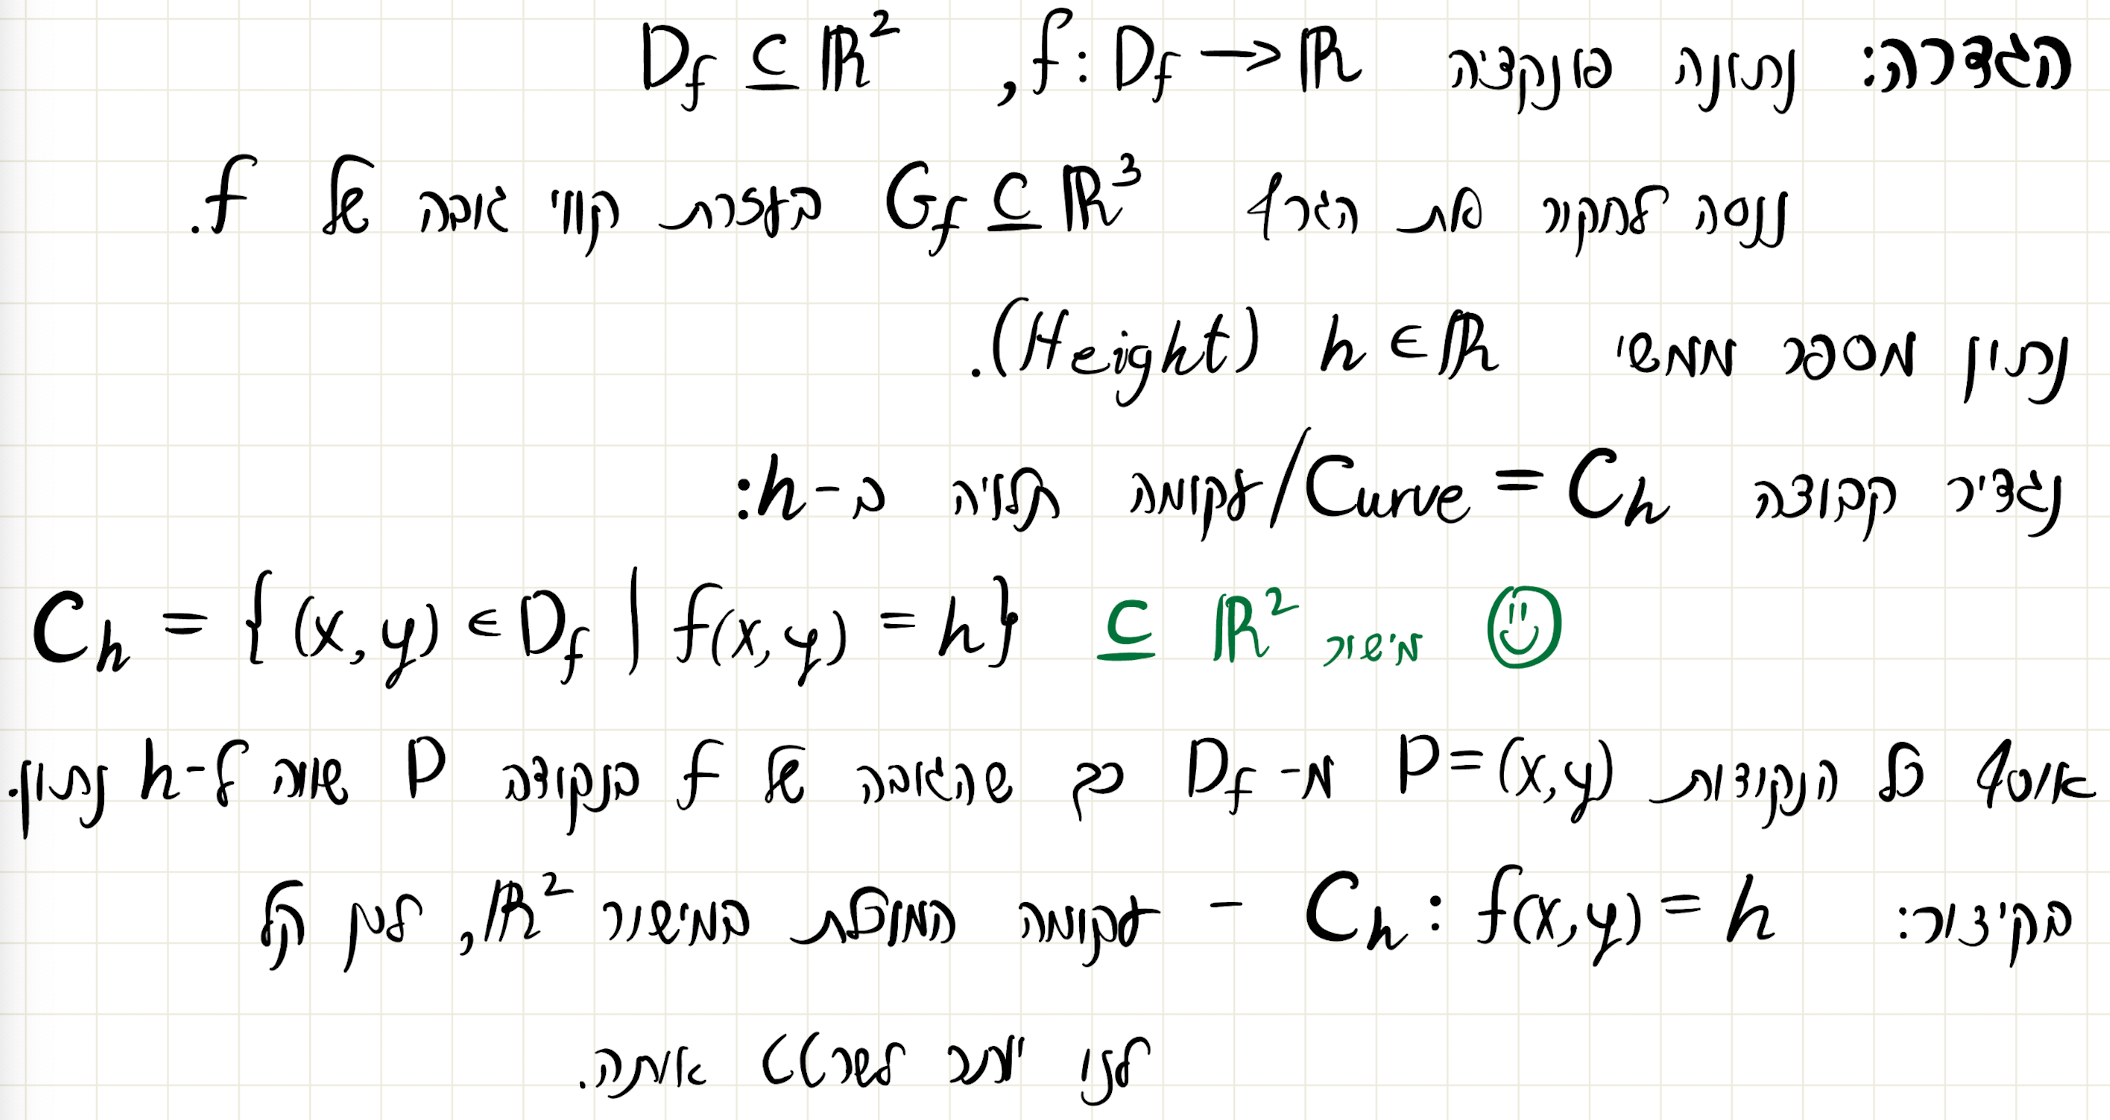 הגדרה: נתונה פונקציה f: D_f → ℝ, D_f ⊆ ℝ²
ננסה לחקור את הגרף G_f ⊆ ℝ³ בעזרת קווי גובה של f.
נתון מספר ממשי h ∈ ℝ (Height).
נגדיר קבוצה C_h = Curve/עקומה תלויה ב-h:
C_h = {(x,y) ∈ D_f | f(x,y) = h} ⊆ ℝ² מישור ☺
אוסף כל הנקודות P=(x,y) מ-D_f כך שהגובה של f בנקודה P שווה ל-h נתון.
בקיצור: C_h: f(x,y) = h – עקומה המוכלת במישור ℝ², לכן קל
לנו יותר לשרטט אותה.